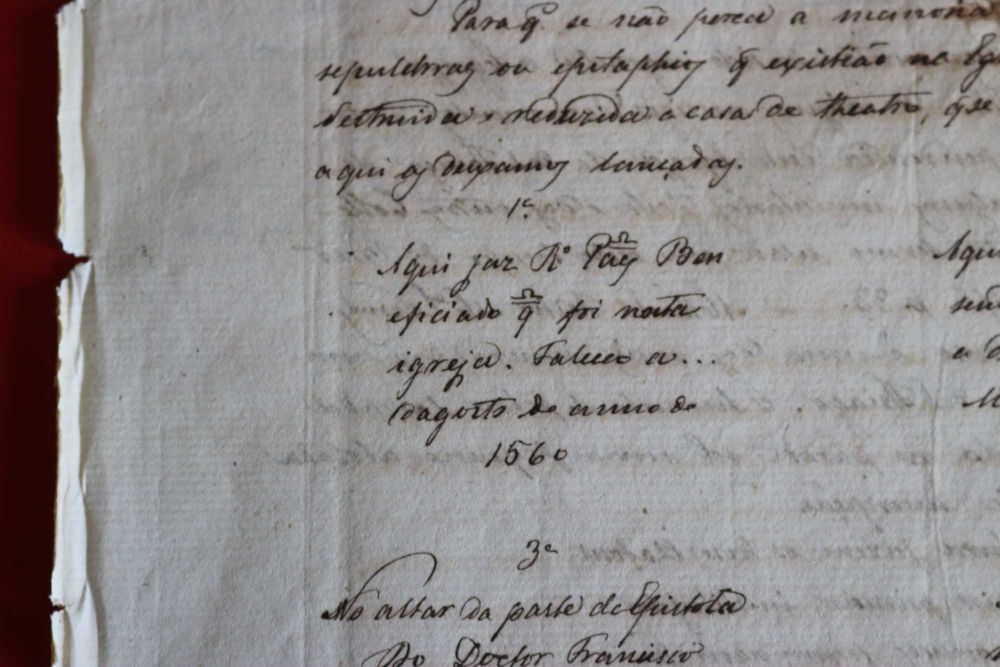 Para q. se não perca a memoria
sepulchraes ou epitaphios q existião na Eg
destruida e reduzida a casa de theatro, q se
aqui os deixamos lançados.
1º
Aqui jaz Rº Paes Ben
eficiado q foi nesta
igreja. Faleceo a...
dagosto do anno de
1560
Aqui
sen
a d
M
3º
No altar da parte de Epistola
Do Doctor Francisco